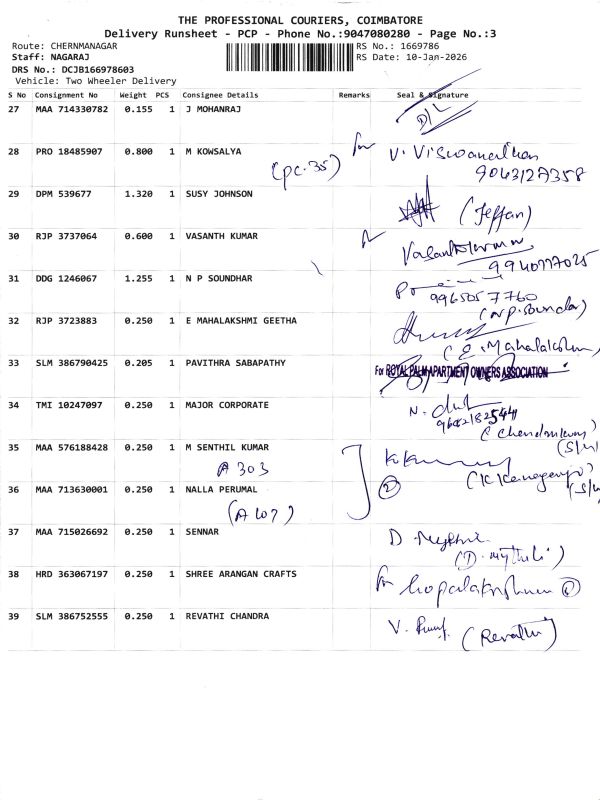 THE PROFESSIONAL COURIERS, COIMBATORE
Delivery Runsheet - PCP - Phone No.:9047080280 - Page No.:3
Route: CHERNMANAGAR RS No.: 1669786
Staff: NAGARAJ RS Date: 10-Jan-2026
DRS No.: DCJB166978603
Vehicle: Two Wheeler Delivery
S No Consignment No Weight PCS Consignee Details Remarks Seal & Signature
27 MAA 714330782 0.155 1 J MOHANRAJ D/L
28 PRO 18485907 0.800 1 M KOWSALYA for V. Viswanathan
(PC.35) 9043127358
29 DPM 539677 1.320 1 SUSY JOHNSON (Jeffan)
30 RJP 3737064 0.600 1 VASANTH KUMAR
9940777025
31 DDG 1246067 1.255 1 N P SOUNDHAR
9965057760
(N.P. Soundar)
32 RJP 3723883 0.250 1 E MAHALAKSHMI GEETHA
(E. Mahalakshmi)
33 SLM 386790425 0.205 1 PAVITHRA SABAPATHY For ROYAL PALM APARTMENT OWNERS ASSOCIATION
34 TMI 10247097 0.250 1 MAJOR CORPORATE
35 MAA 576188428 0.250 1 M SENTHIL KUMAR
A 303
36 MAA 713630001 0.250 1 NALLA PERUMAL 2
(A 107)
37 MAA 715026692 0.250 1 SENNAR
(D. Mythili)
38 HRD 363067197 0.250 1 SHREE ARANGAN CRAFTS for Gopalakrishnan
39 SLM 386752555 0.250 1 REVATHI CHANDRA V.
(Revathi)